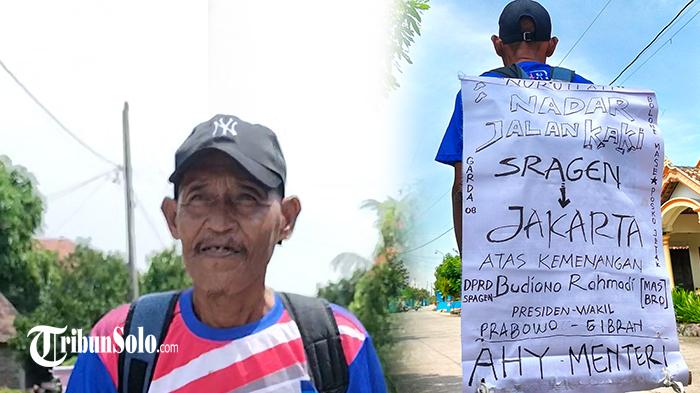 NY
TribunSolo.com
NADAR
JALAN KAKI
SRAGEN
JAKARTA
ATAS KEMENANGAN
DPRD SRAGEN Budiono Rahmadi [MAS BRO]
PRESIDEN-WAKIL
PRABOWO - GIBRAN
AHY MENTERI
GARDA 08
BOLONE MASE ★ POSKO JETAK